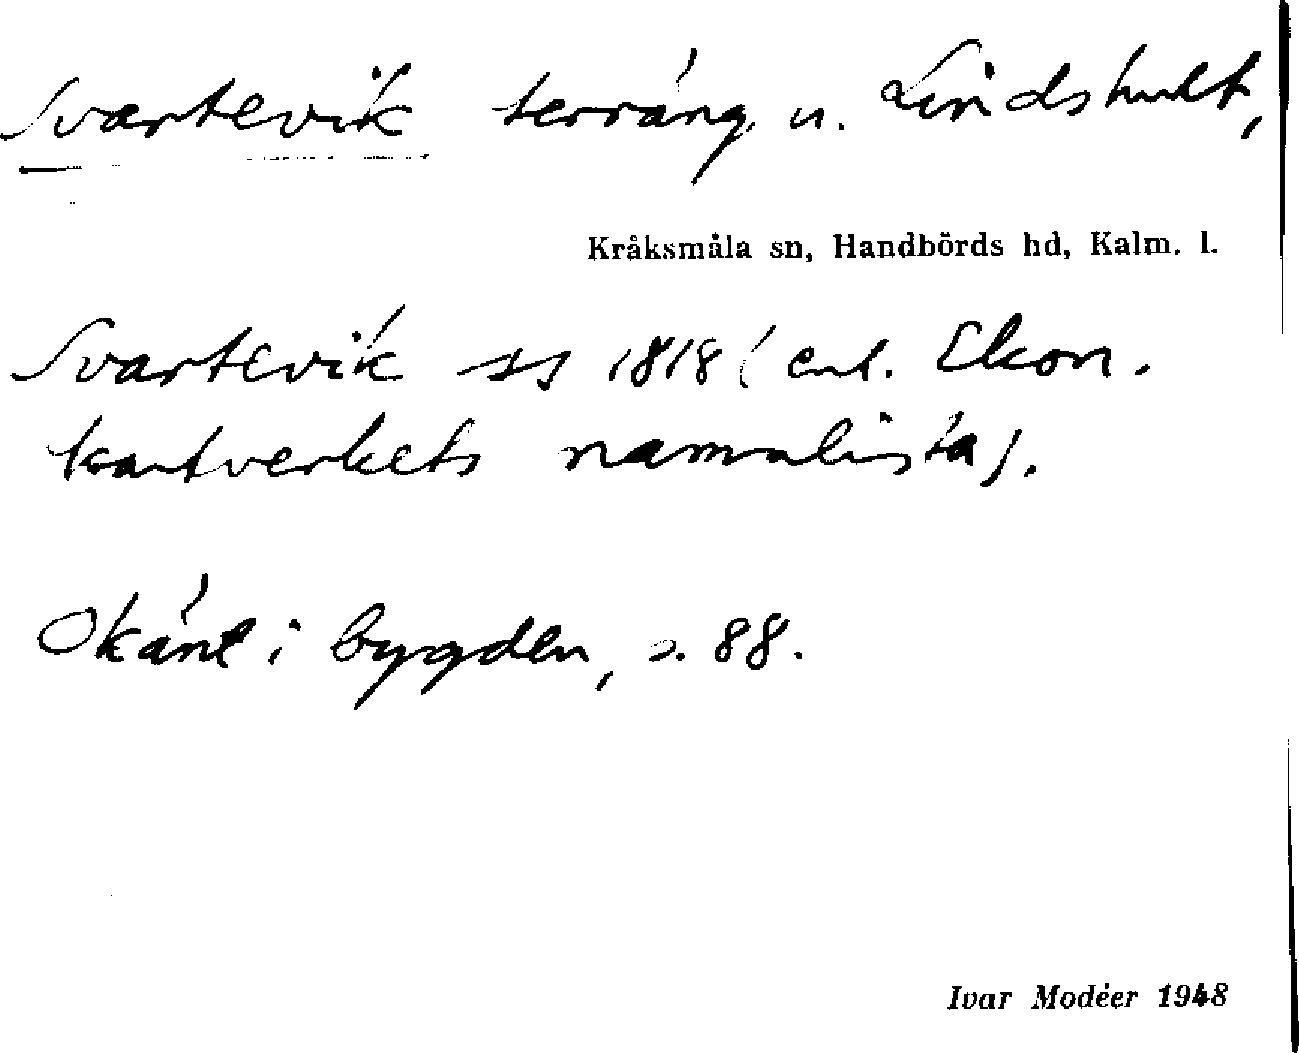 Svartevik terräng u. Lindshult,
Kråksmåla sn, Handbörds hd, Kalm. l.
Svartevik ss 1818 (enl. Ekon.
kartverkets namnlista).
Okänt i bygden, s. 88.
Ivar Modéer 1948